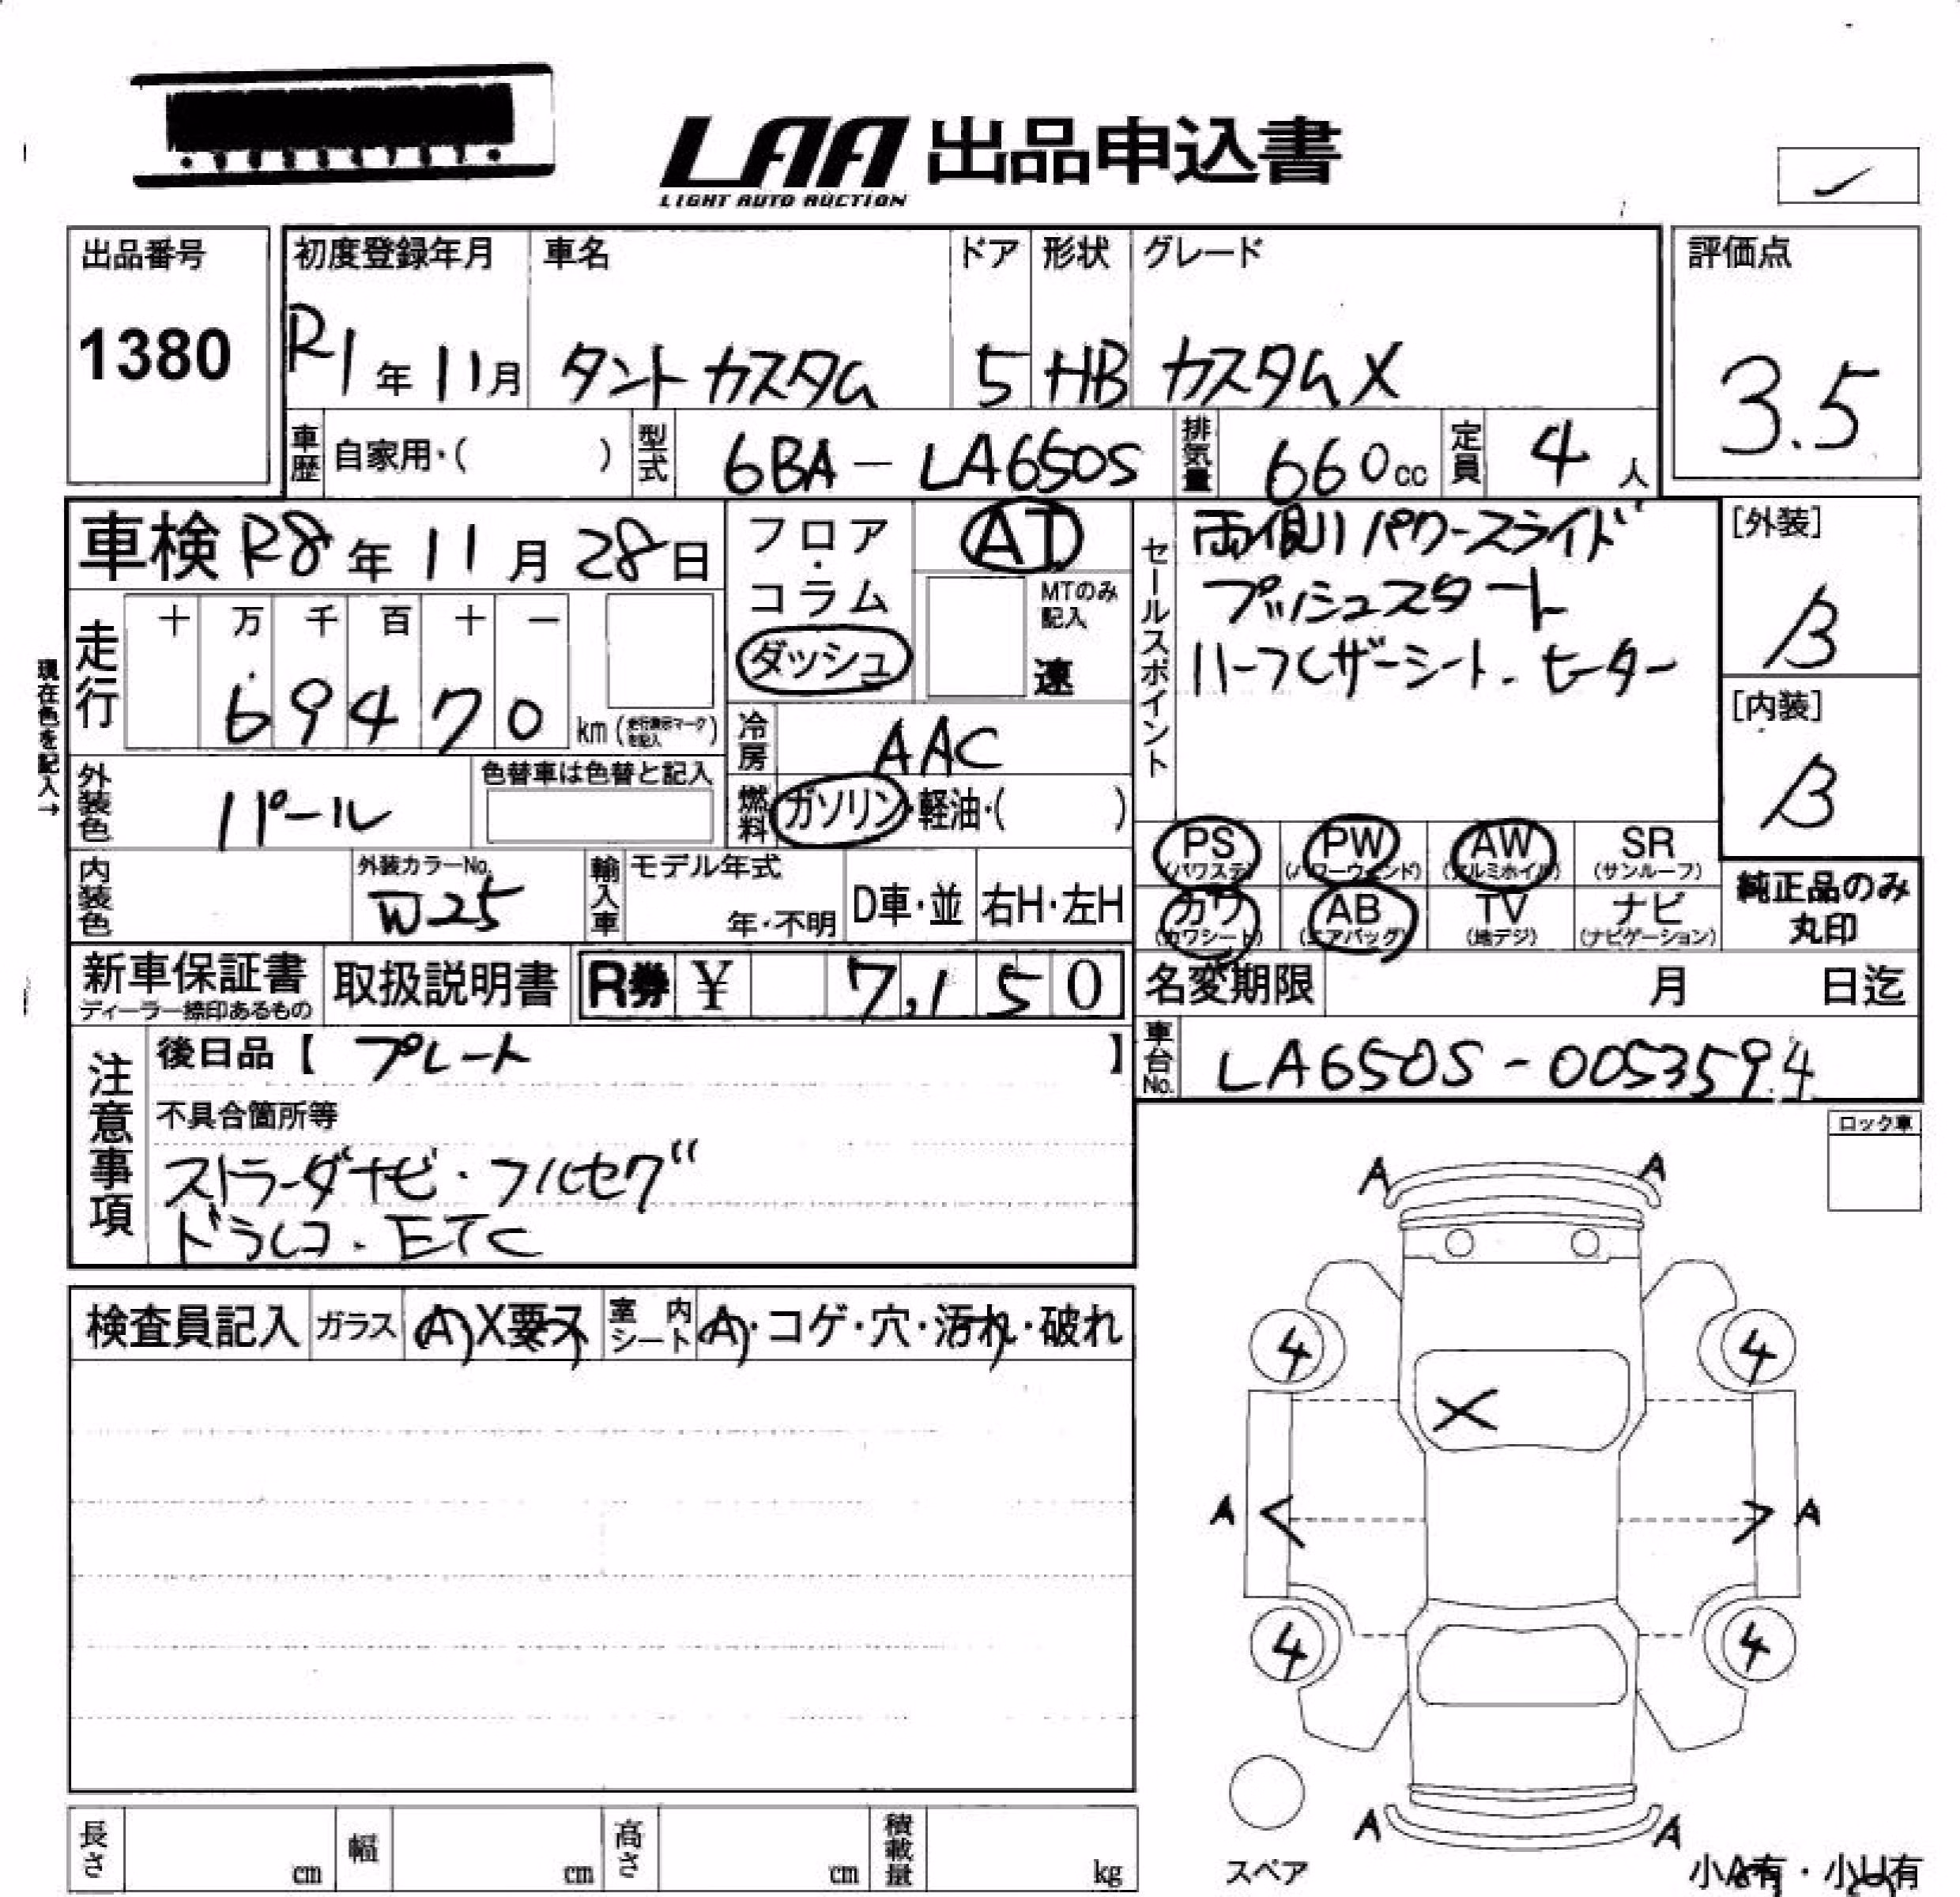 LAA 出品申込書
LIGHT AUTO AUCTION
出品番号
1380
初度登録年月 車名 ドア 形状 グレード
R1年11月 タントカスタム 5 HB カスタムX
評価点
3.5
車歴 自家用・( ) 型式 6BA-LA650S 排気量 660cc 定員 4人
車検 R8年11月28日
フロア・コラム
ダッシュ
AT
MTのみ記入
速
セールスポイント
両側パワースライド
プッシュスタート
ハーフレザーシート・ヒーター
[外装]
B
[内装]
B
現在色を記入→
走行 十 万 千 百 十 一
69470 km (走行表示マークを記入)
冷房 AAC
外装色 パール 色替車は色替と記入
燃料 ガソリン・軽油・( )
内装色 外装カラーNo. W25
輸入車 モデル年式 年・不明 D車・並 右H・左H
PS (パワステ) PW (パワーウィンド) AW (アルミホイル) SR (サンルーフ)
カワ (カワシート) AB (エアバッグ) TV (地デジ) ナビ (ナビゲーション)
純正品のみ丸印
新車保証書 ディーラー捺印あるもの 取扱説明書 R券 ¥ 7,150
名変期限 月 日迄
車台No. LA650S-0053594
注意事項
後日品【 プレート 】
不具合箇所等
ストラーダナビ・フルセグ
ドラレコ・ETC
ロック車
検査員記入 ガラス A X要ス 室内シート A・コゲ・穴・汚れ・破れ
A A
4 4
X
A < > A
4 4
A A
スペア
小A有・小U有
長さ cm 幅 cm 高さ cm 積載量 kg